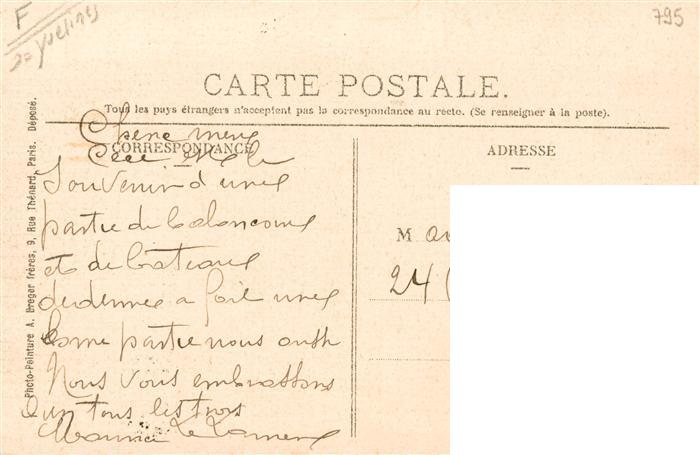 F
795
Yvelines
CARTE POSTALE.
Tous les pays étrangers n'acceptent pas la correspondance au recto. (Se renseigner à la poste).
CORRESPONDANCE
ADRESSE
Chere
Souvenir d'une
partie de balancoire
et de bateaux
a fait une
bonne partie nous
Nous vous embrassons
tous les trois
Maurice
M
24
Photo-Peinture A. Breger frères, 9, Rue Thénard, Paris. Déposé.